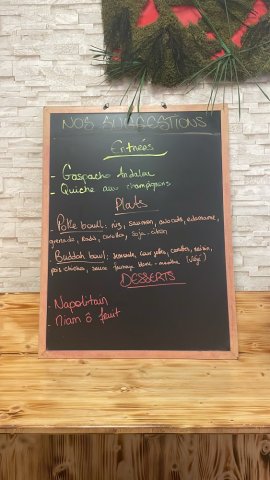 NOS SUGGESTIONS
Entrées
- Gaspacho Andalou
- Quiche aux champignons
Plats
- Poke bowl: riz, saumon, avocado, edamame,
grenade, Radis, carottes, Soja - citron
- Buddah bowl: Semoule, carottes, raisin,
pois chiches, sauce fromage blanc - menthe (Végé)
DESSERTS
- Napolitain
- Miam ô fruit